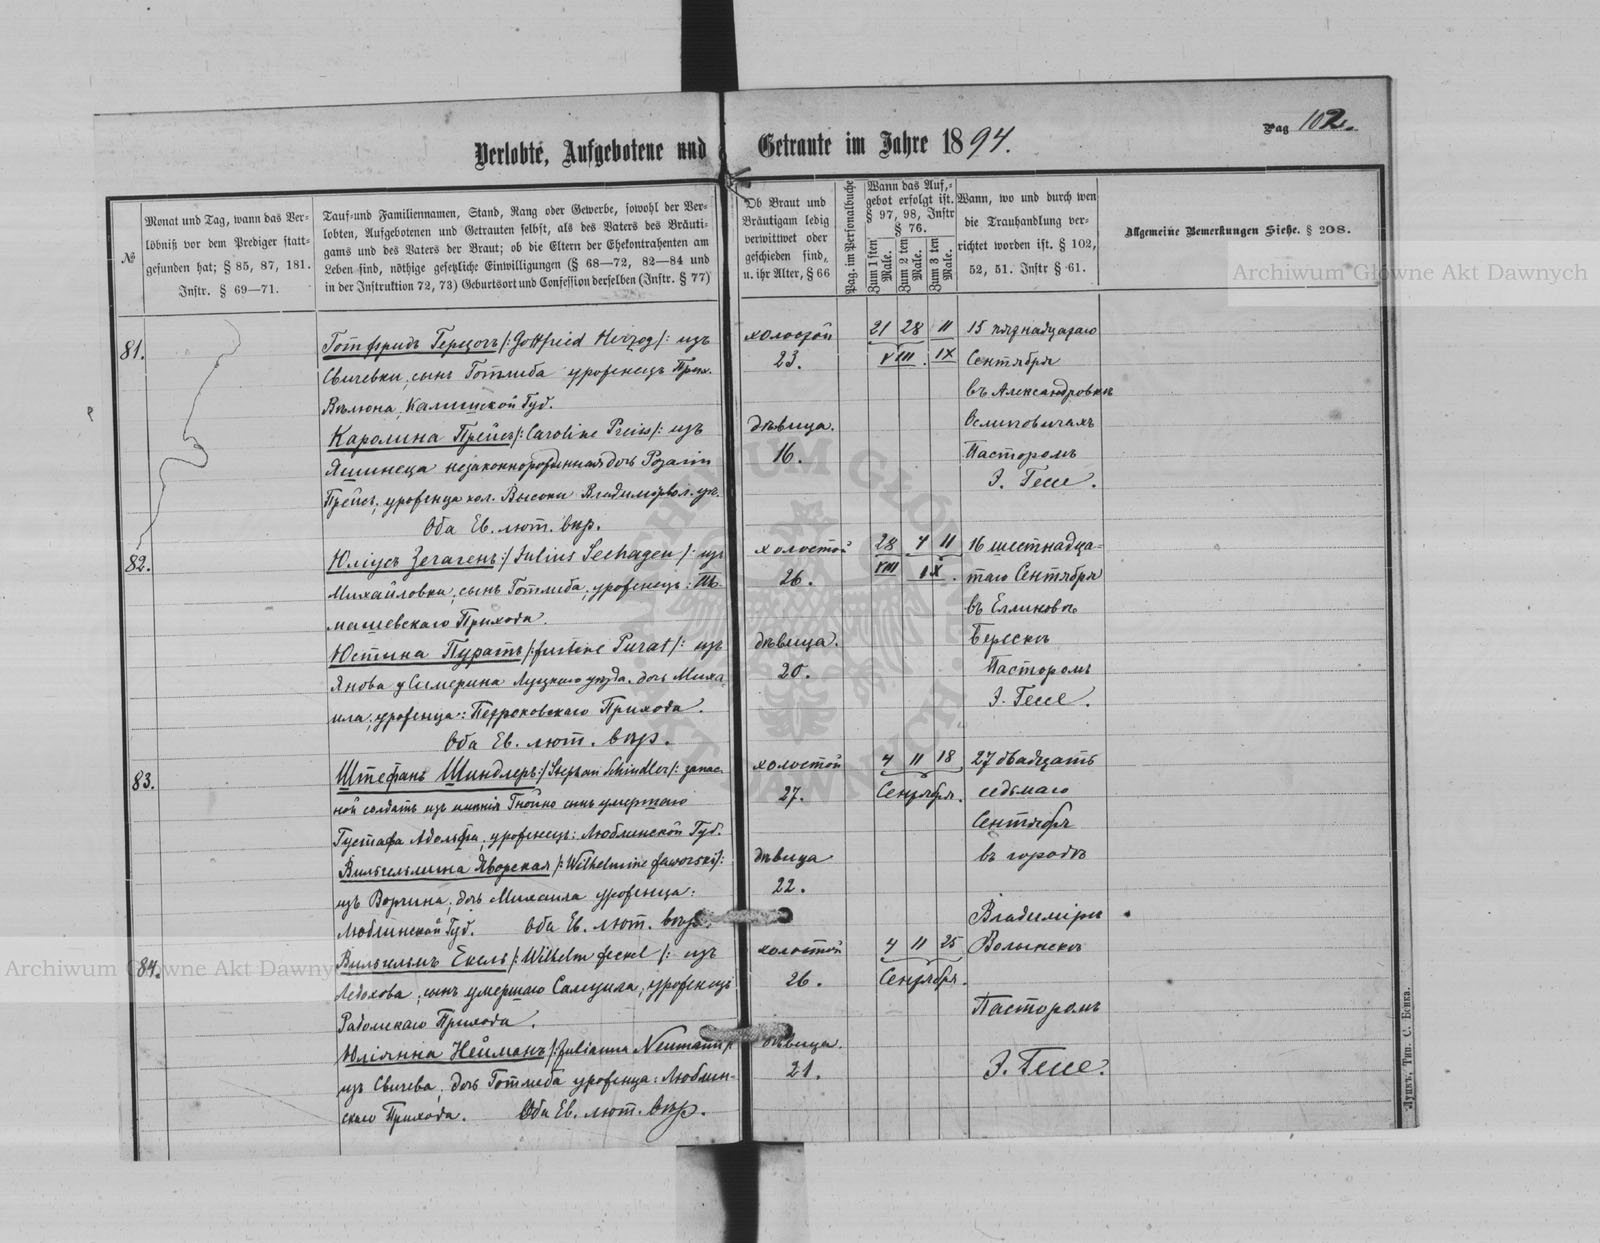 Verlobte, Aufgebotene und Getraute im Jahre 1894.
Pag 102.
№
Monat und Tag, wann das Ver-
löbniß vor dem Prediger statt-
gefunden hat; § 85, 87, 181.
Instr. § 69—71.
Tauf-und Familiennamen, Stand, Rang oder Gewerbe, sowohl der Ver-
lobten, Aufgebotenen und Getrauten selbst, als des Vaters des Bräuti-
gams und des Vaters der Braut; ob die Eltern der Ehekontrahenten am
Leben sind, nöthige gesetzliche Einwilligungen (§ 68—72, 82—84 und
in der Instruktion 72, 73) Geburtsort und Confession derselben (Instr. § 77)
Ob Braut und
Bräutigam ledig
verwittwet oder
geschieden sind,
u. ihr Alter, § 66
Pag. im Personalbuche
Wann das Auf,-
gebot erfolgt ist.
§ 97, 98, Instr
§ 76.
Zum 1 sten Male.
Zum 2 ten Male.
Zum 3 ten Male.
Wann, wo und durch wen
die Trauhandlung ver-
richtet worden ist. § 102,
52, 51. Instr § 61.
Allgemeine Bemerkungen Siehe. § 208.
Archiwum Główne Akt Dawnych
81.
Готфридъ Герцогъ /: Gottfried Herzog /: изъ
Свичевки, сынъ Готлиба уроженецъ Прих.
Вѣлюна, Калишской Губ.
Каролина Прейсъ /: Caroline Preiss /: изъ
Яминеца незаконнорожденная дочь Розалии
Прейсъ, уроженца кол. Высоки Владимірвол. уѣ.
Оба Ев. лют. вѣр.
холостой
23.
дѣвица.
16.
21 28 11
VIII. IX
15 пятнадцатаго
Сентября
въ Александровкѣ
Осьмиговичахъ
Пасторомъ
Э. Гессе.
82.
Юліусъ Зегагенъ :/ Julius Seehagen /: изъ
Михайловки, сынъ Готлиба, уроженецъ:
машевскаго Прихода.
Юстина Пуратъ /: Justine Purat /: изъ
Янова у Симерина Луцкаго уѣзда. дочь Миха-
ила, уроженца: Петроковскаго Прихода.
Оба Ев. лют. вѣр.
холостой
26.
дѣвица.
20.
28 4 11
VIII IX.
16 шестнадца-
таго Сентября
въ Еллиновѣ
Берескѣ
Пасторомъ
Э. Гессе.
83.
Штефанъ Шиндлеръ :/ Stephan Schindler /: запас-
ной солдатъ изъ имѣнія Гнойно сынъ умершаго
Густафа Адольфа, уроженецъ: Люблинской Губ.
Вильгельмина Яворская /: Wilhelmine Jaworski /:
изъ Ворчина, дочь Михаила уроженца:
Люблинской Губ. Оба Ев. лют. вѣр.
холостой
27.
дѣвица
22.
4 11 18
Сентября.
27 двадцать
седьмаго
Сентября
въ городѣ
Владимірѣ
Волынскѣ
Пасторомъ
Э. Гессе.
84.
Вильгельмъ Екель /: Wilhelm Jeckel /: изъ
Ледохова, сынъ умершаго Самуила, уроженецъ
Радомскаго Прихода.
Юліянна Нейманъ /: Julianna Neumann /:
изъ Свичева, дочь Готлиба уроженца: Люблин-
скаго Прихода. Оба Ев. лют. вѣр.
холостой
26.
дѣвица.
21.
4 11 25
Сентября.
Archiwum Główne Akt Dawnych
Луцкъ, Тип. С. Бенка.